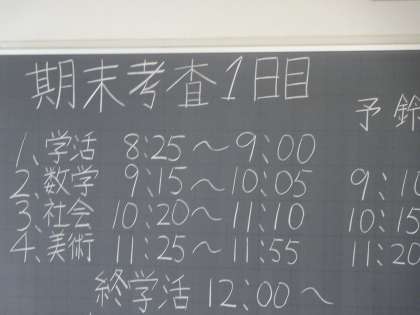 期末考査1日目
予鈴
1、学活 8:25~9:00
2、数学 9:15~10:05 9:10
3、社会 10:20~11:10 10:15
4、美術 11:25~11:55 11:20
終学活 12:00~